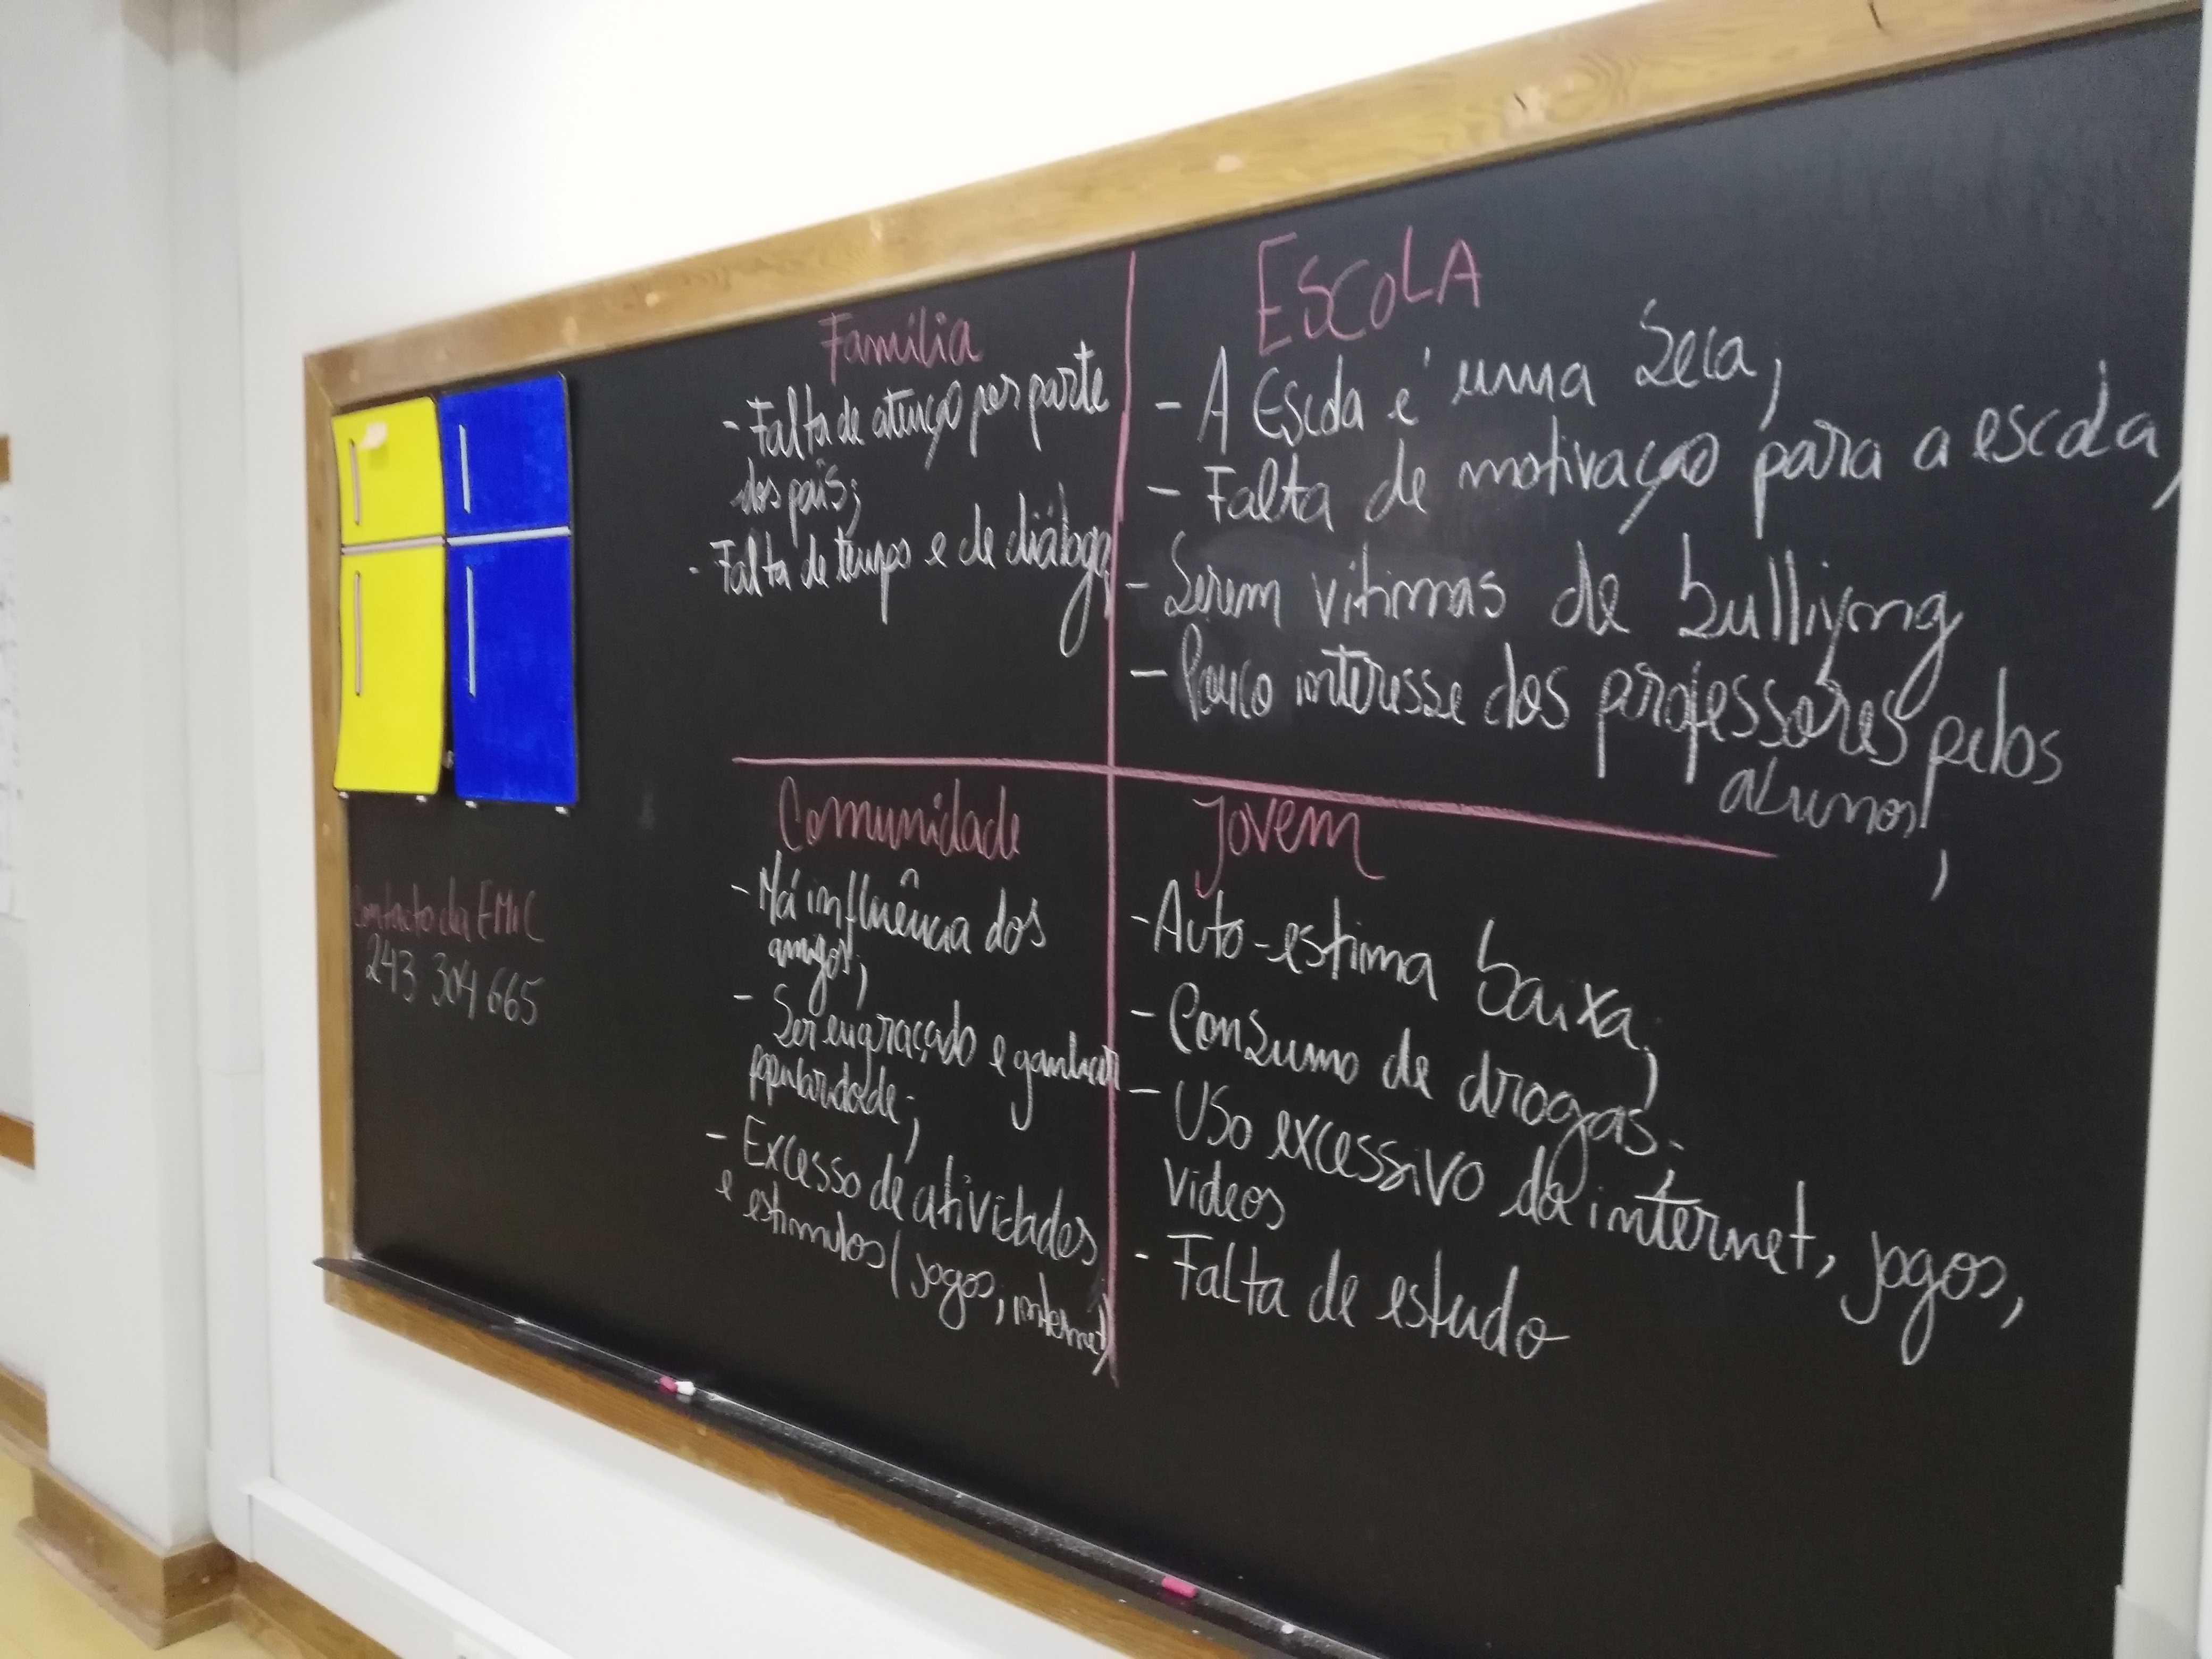 Família
- Falta de atenção por parte
dos pais;
- Falta de tempo e de diálogo;
ESCOLA
- A Escola é uma seca;
- Falta de motivação para a escola;
- Serem vítimas de bulliyng
- Pouco interesse dos professores pelos
alunos;
Comunidade
- Má influência dos
amigos;
- Ser engraçado e ganhar
popularidade;
- Excesso de atividades
e estímulos (jogos, internet)
Jovem
- Auto-estima baixa;
- Consumo de drogas;
- Uso excessivo da internet, jogos,
videos
- Falta de estudo
Contacto da EMIC
243 304 665